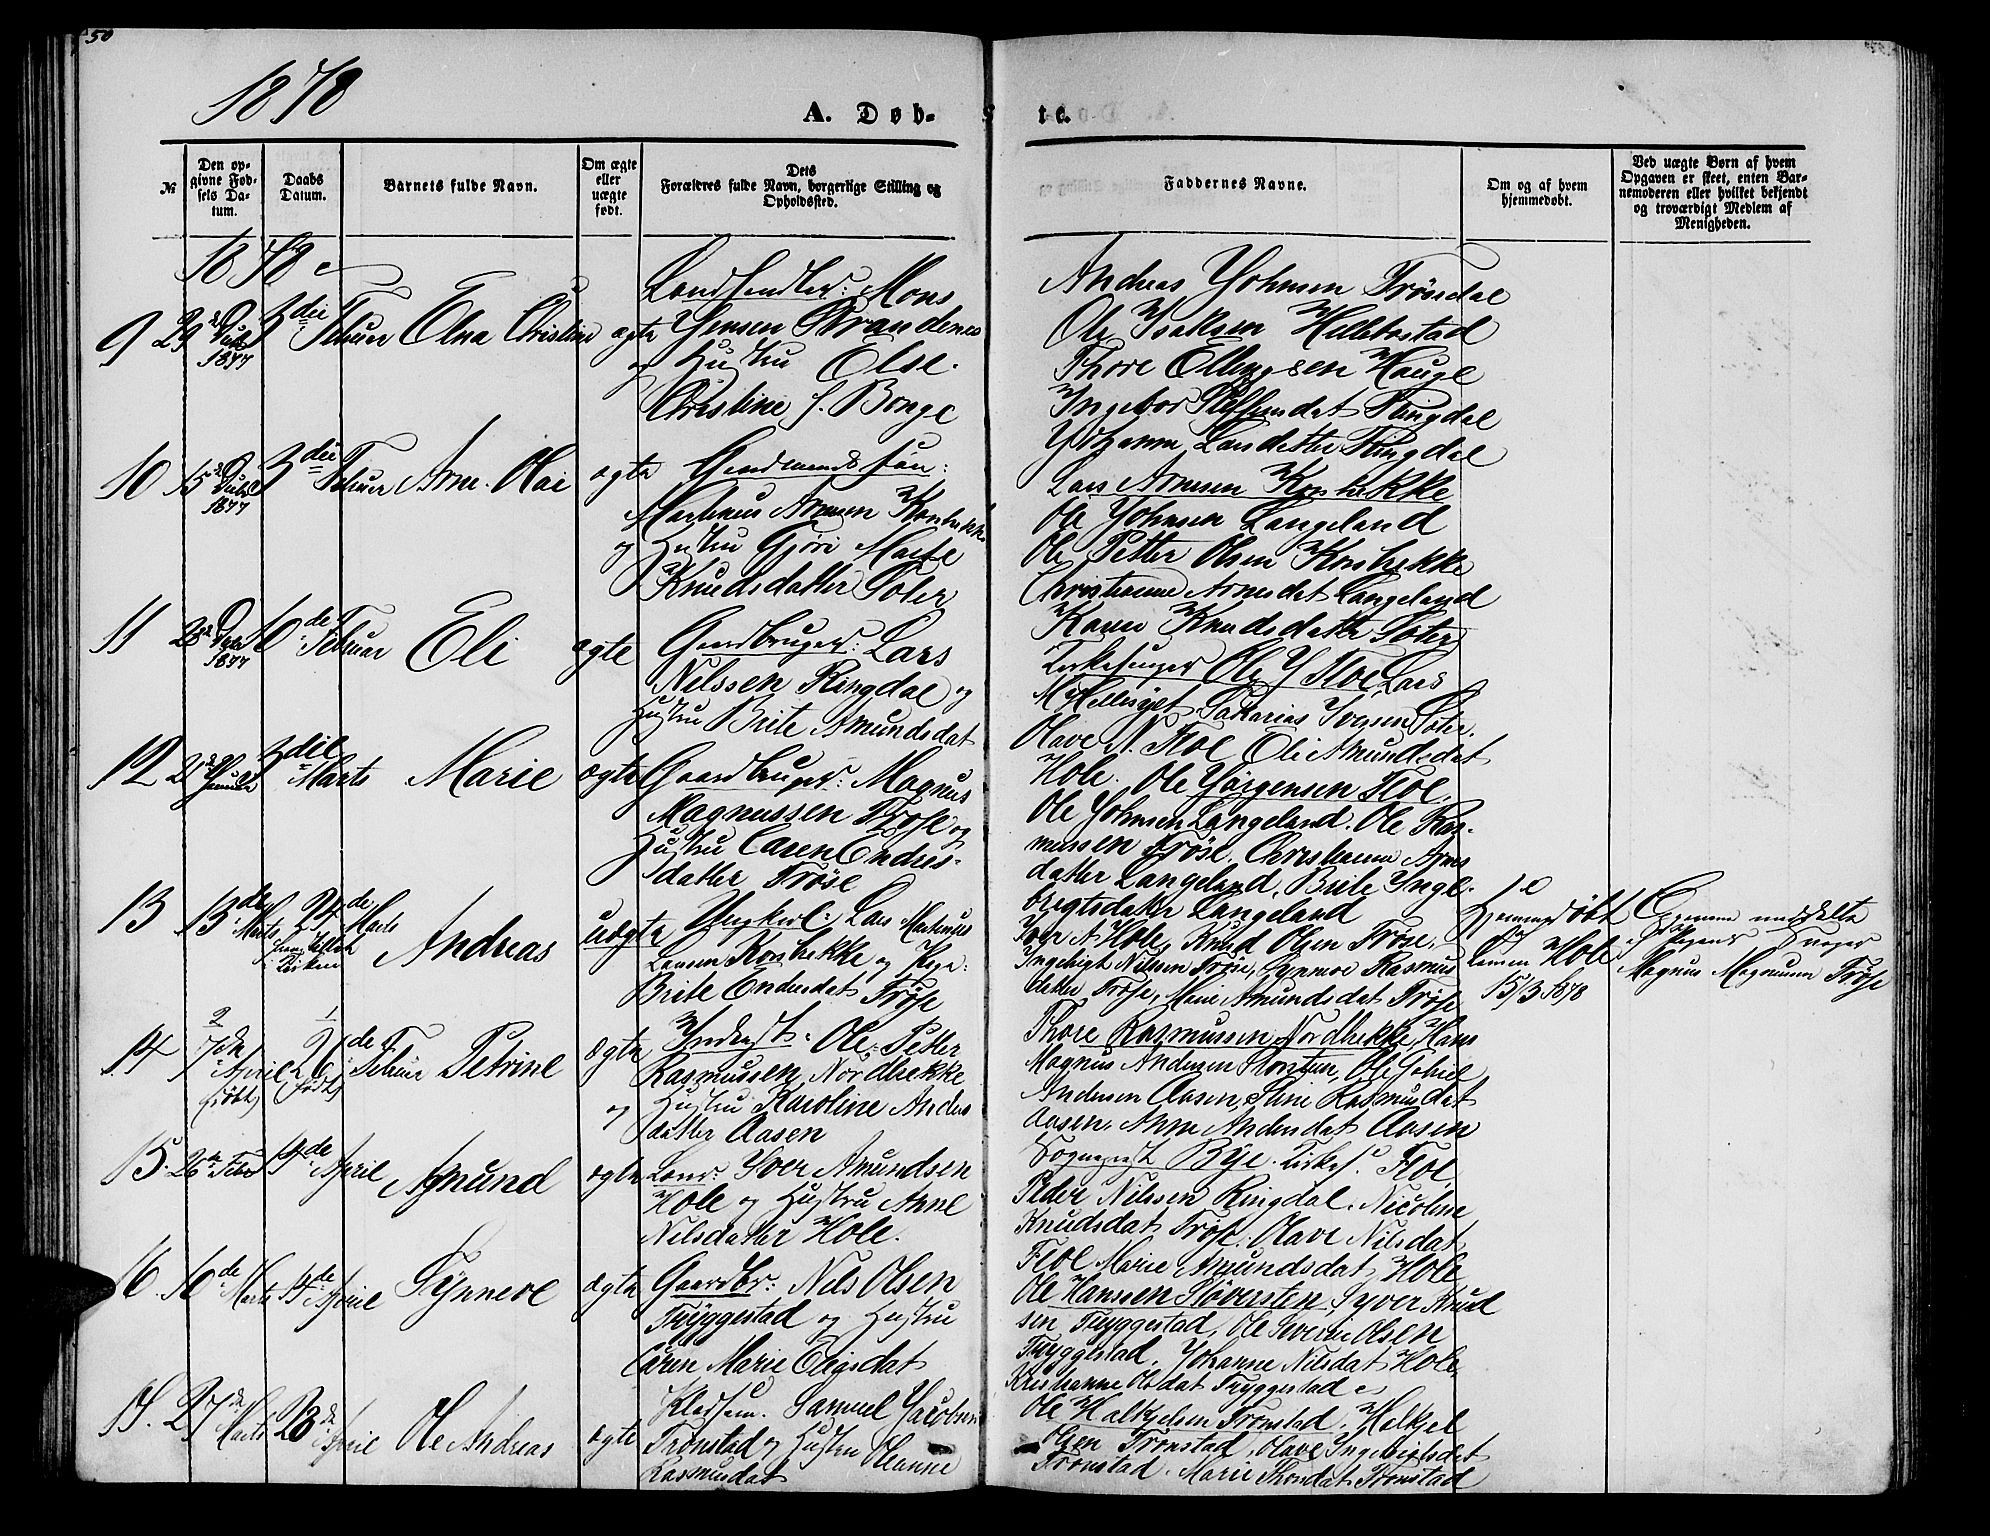 50
1878
A. Døb-
te.
№
Den opgivne Fødsels Datum.
Daabs Datum.
Barnets fulde Navn.
Om ægte eller uægte født.
Dets Forældres fulde Navn, borgerlige Stilling og Opholdssted.
Faddernes Navne.
Om og af hvem hjemmedøbt.
Ved uægte Børn af hvem Opgaven er skeet, enten Barnemoderen eller hvilket bekjendt og troværdigt Medlem af Menigheden.
1878
9 29 1877 3die Febuer Elna Christine ægte
Landhendler: Mons
Jensen Strandenes
og Hustru Else
Christine f. Bonge
Andreas Johnsen Frøisedal
Ole Isaksen Hellebostad
Thore Ellingsen Hauge
Ingebor Steffensdat Ringdal
Johanna Larsdatter Ringdal
10 15 1877 3die Febuer Arne Olai ægte
Gardmands søn:
Martinus Arnesen Korsbrekke
og Hustru Gjøri Marte
Knudsdatter Toter
Lars Arnesen Korsbrekke
Ole Johnsen Langeland
Ole Petter Olsen Korsbrekke
Christianne Arnesdat Langeland
Karen Knudsdatter Toter
11 28 1877 10de Febuar Eli ægte
Gardbruger: Lars
Nilssen Ringdal og
Hustru Brite Amundsdat
Kirkesanger Ole J Floe Lars
M Hellisyet Sakarias Iversen Toter
Olave N. Floe Eli Amundsdat
Hole. Ole Jørgensen Floe
12 21 Januar 3die Marts Marie ægte
Gaardbruger: Magnus
Magnussen Frøse og
Hustru Caren Endres-
datter Frøse
Ole Johnsen Langeland. Ole Ras-
mussen Frøse. Christianna Arnes
datter Langeland, Brite Inge-
bregtsdater Langeland
13 13de Marts 24de Marts Andreas uægte
i Kirken
Ungkerl: Lars Martinus
Larsen Korsbrekke og Pige:
Brite Endresdat Frøse
Iver A Hole, Knud Olsen Frøse,
Ingebrigt Nilssen Frøse, Synnøve Rasmus
datter Frøse, Marie Amundsdat Frøse
Hjemmedøbt
Larsen Hole
15/3 1878
Opgaven meddelte
Pigens Svoger
Magnus Magnusen Frøse
14 7de April døbt 26de Febuer født Petrine ægte
Inderst: Ole Petter
Rasmussen Nordbrekke
og Hustru Karoline Anders
datter Aasen
Thore Rasmussen Nordbrekke Hans
Magnus Andersen Korsten, Ole Gabriel
Andersen Aasen, Stine Rasmusdat
Aasen, Anne Andersdat Aasen
15. 26de Febr 14de April Amund ægte
Lens: Iver Amundsen
Hole og Hustru Anne
Nilsdatter Hole.
Sognepræst Bye. Kirkes. Floe,
Peder Nilssen Ringdal. Nicoline
Knudsdat Frøse. Olave Nilsdat
Floe Marie Amundsdat Hole
16 10de Marts 14de April Synneve ægte
Gaardbr: Nils Olsen
Tryggestad og Hustru
Caren Marie Eligsdat
Ole Hanssen Støversten, Syver Knud
sen Tryggestad, Ole Severin Olsen
Tryggestad, Johanne Nilsdat Hole
Kristianne Olsdat Tryggestad
27de Marts 28de April Ole Andreas ægte
Samuel Jacobsen
Tronstad og Hustru Oleanne
Rasmusdat
Ole Halkjelsen Tronstad, Halkjel
Olsen Tronstad, Olave Ingebrigtsdat
Tronstad. Marie Thoresdat Tronstad